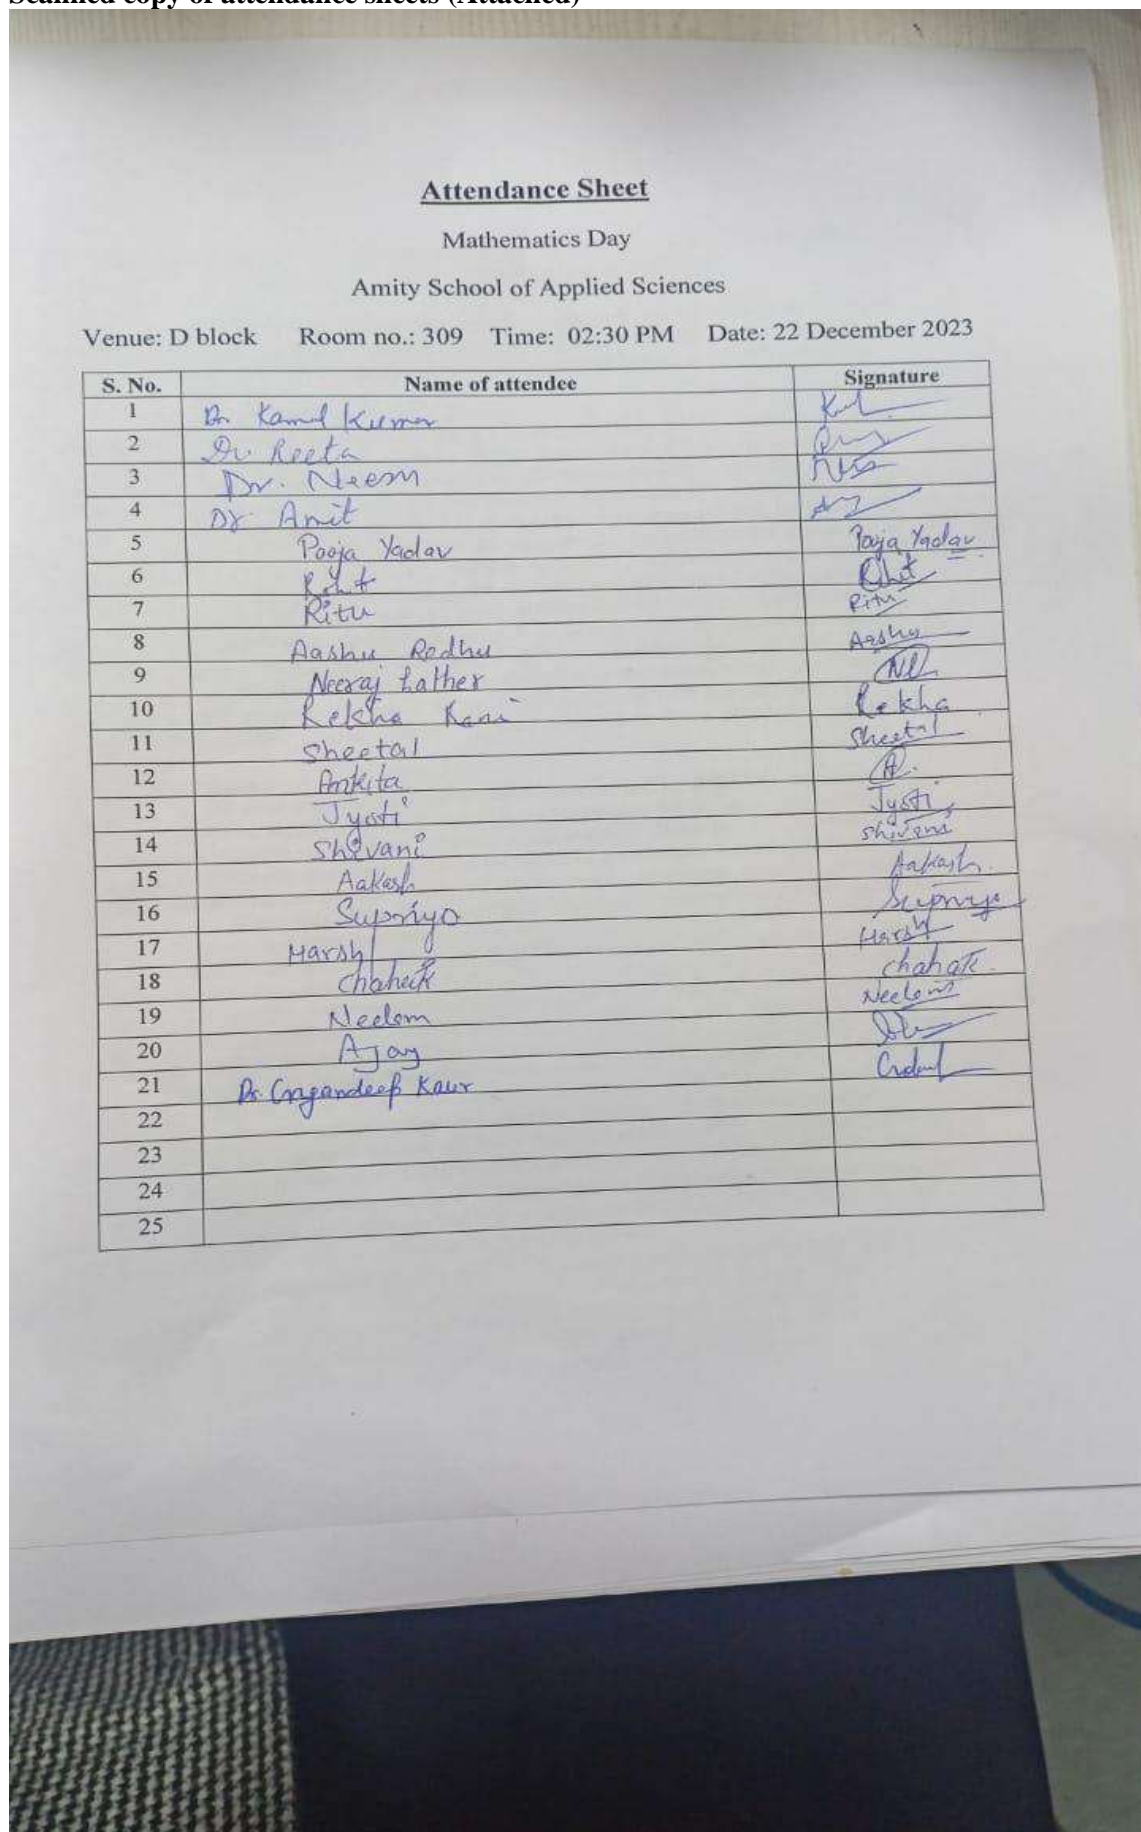 Scanned copy of attendance sheets (Attached)
Attendance Sheet
Mathematics Day
Amity School of Applied Sciences
Venue: D block Room no.: 309 Time: 02:30 PM Date: 22 December 2023
S. No. Name of attendee Signature
1 Dr Kamal Kumar
2 Dr. Reeta
3 Dr. Neem
4 Dr. Amit
5 Pooja Yadav Pooja Yadav
6 Rohit Rohit
7 Ritu Ritu
8 Aashu Redhu Aashu
9 Neeraj Lather
10 Rekha Rani Rekha
11 Sheetal Sheetal
12 Ankita A.
13 Jyoti Jyoti
14 Shivani Shivani
15 Aakash Aakash
16 Supriyo Supriyo
17 Harsh Harsh
18 Chahak Chahak
19 Neelam Neelam
20 Ajay
21 Dr. Gagandeep Kaur
22
23
24
25